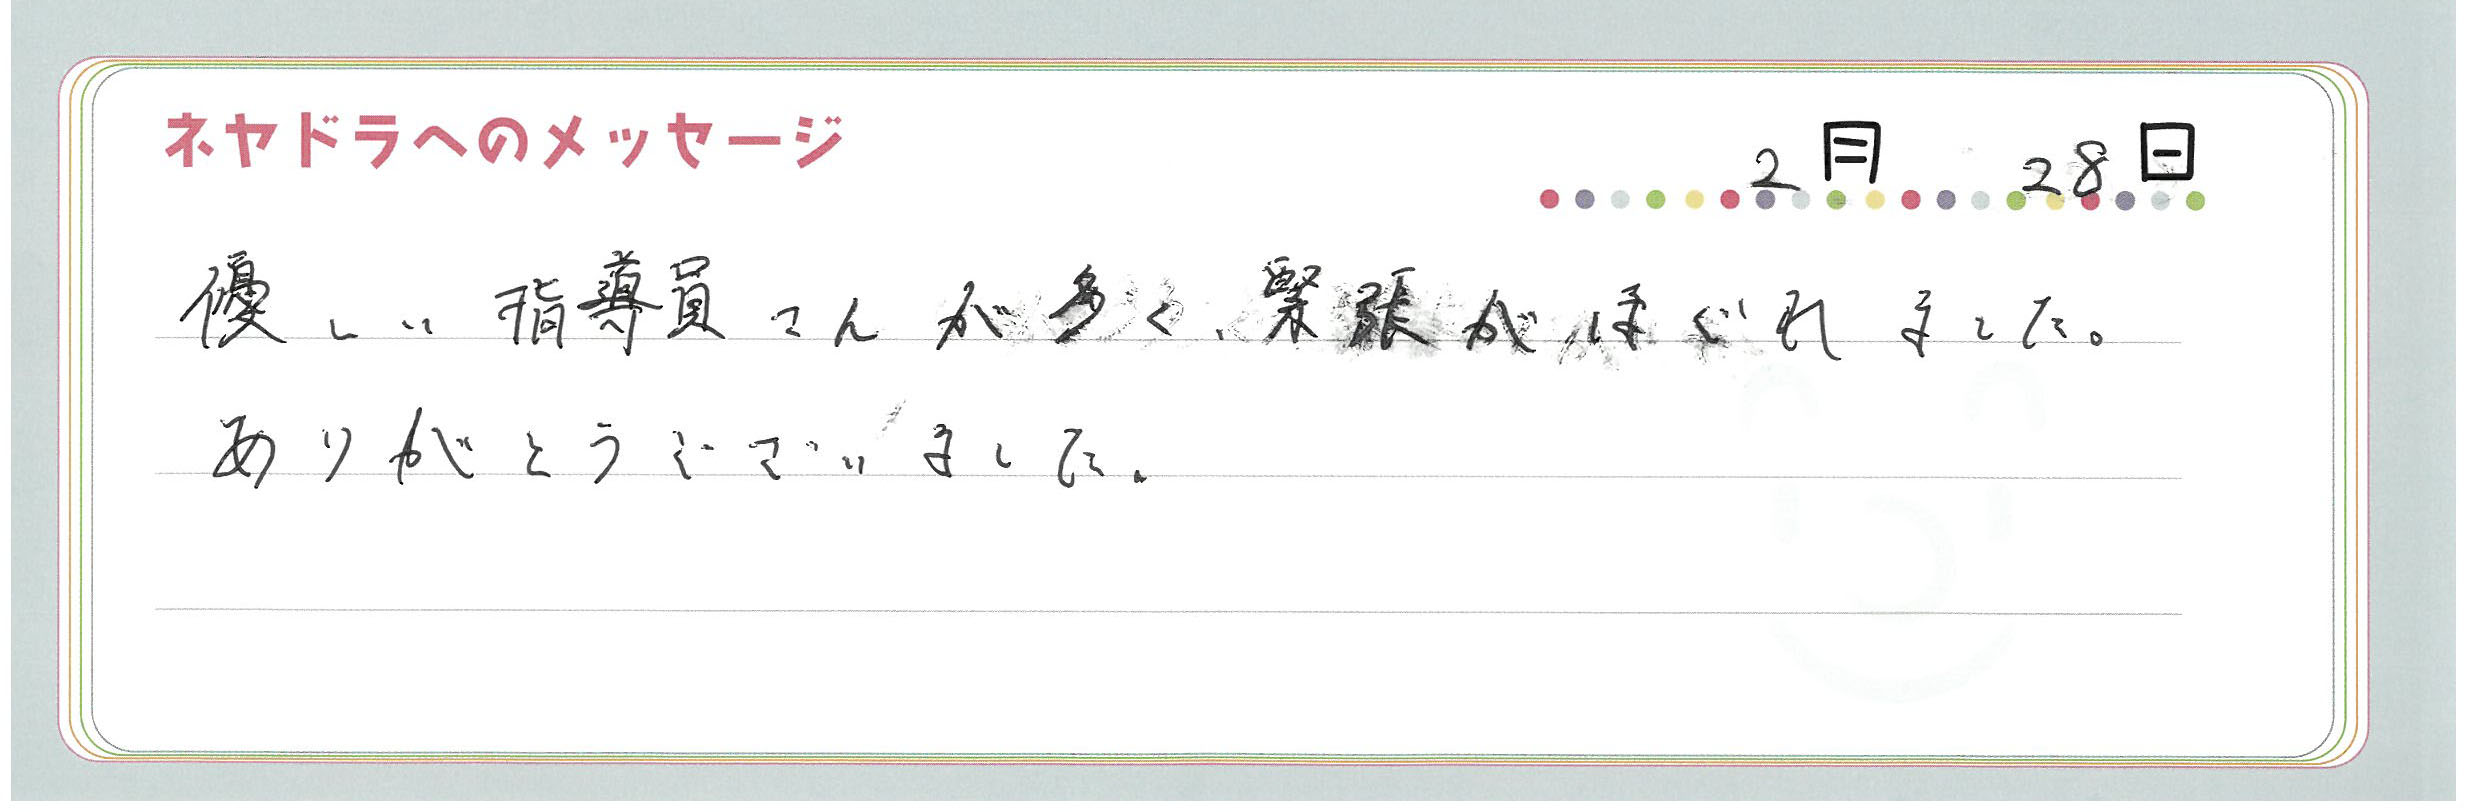 ネヤドラへのメッセージ
2月 28日
優しい指導員さんが多く、緊張がほぐれました。
ありがとうございました。